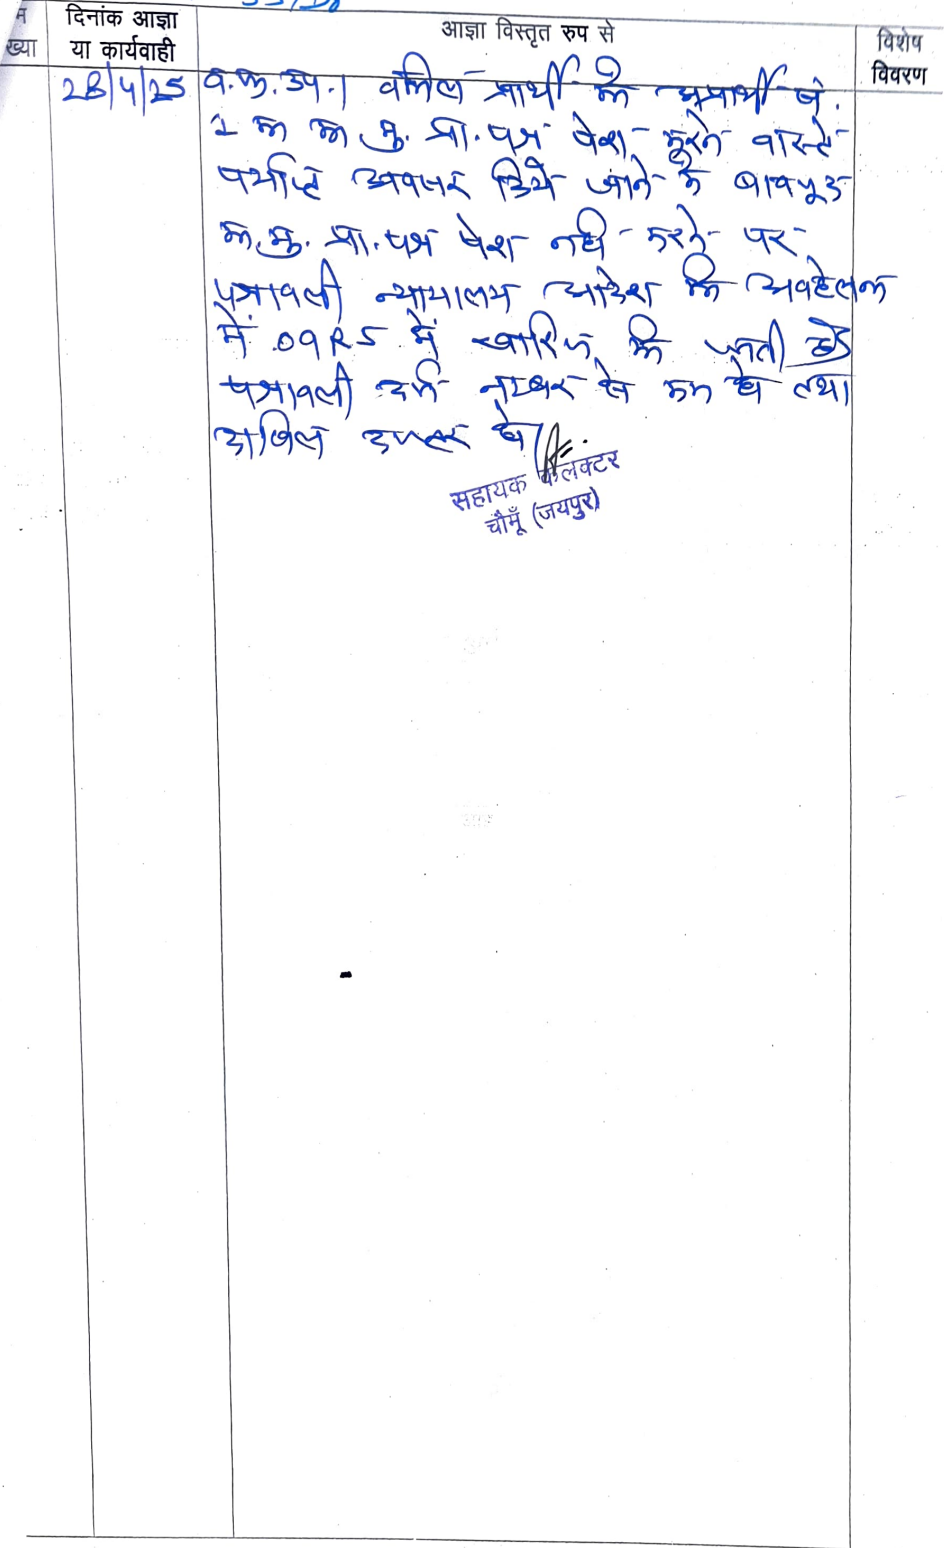 दिनांक आज्ञा
या कार्यवाही
आज्ञा विस्तृत रुप से
विशेष
विवरण
ख्या
28/4/25 व.फ.उप.। वकिल प्रार्थी को अप्रार्थी सं.
1 का का.मु. प्रा.पत्र पेश करने वास्ते
पर्याप्त अवसर दिये जाने के बावजूद
का.मु. प्रा.पत्र पेश नही करने पर
पत्रावली न्यायालय आदेश कि अवहेलना
में 09R5 में खारिज कि जाती है
पत्रावली दर्ज नम्बर से कम हो तथा
दाखिल दफ्तर हो।
सहायक कलक्टर
चौमूँ (जयपुर)